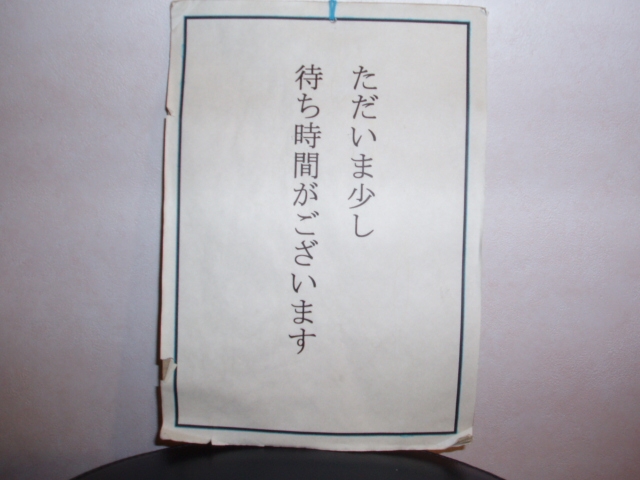 ただいま少し
待ち時間がございます